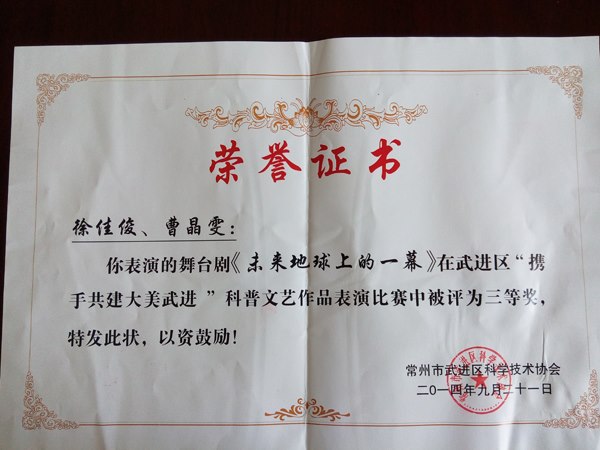 荣誉证书
徐佳俊、曹晶雯：
你表演的舞台剧《未来地球上的一幕》在武进区“携
手共建大美武进”科普文艺作品表演比赛中被评为三等奖，
特发此状，以资鼓励！
常州市武进区科学技术协会
二〇一四年九月二十一日